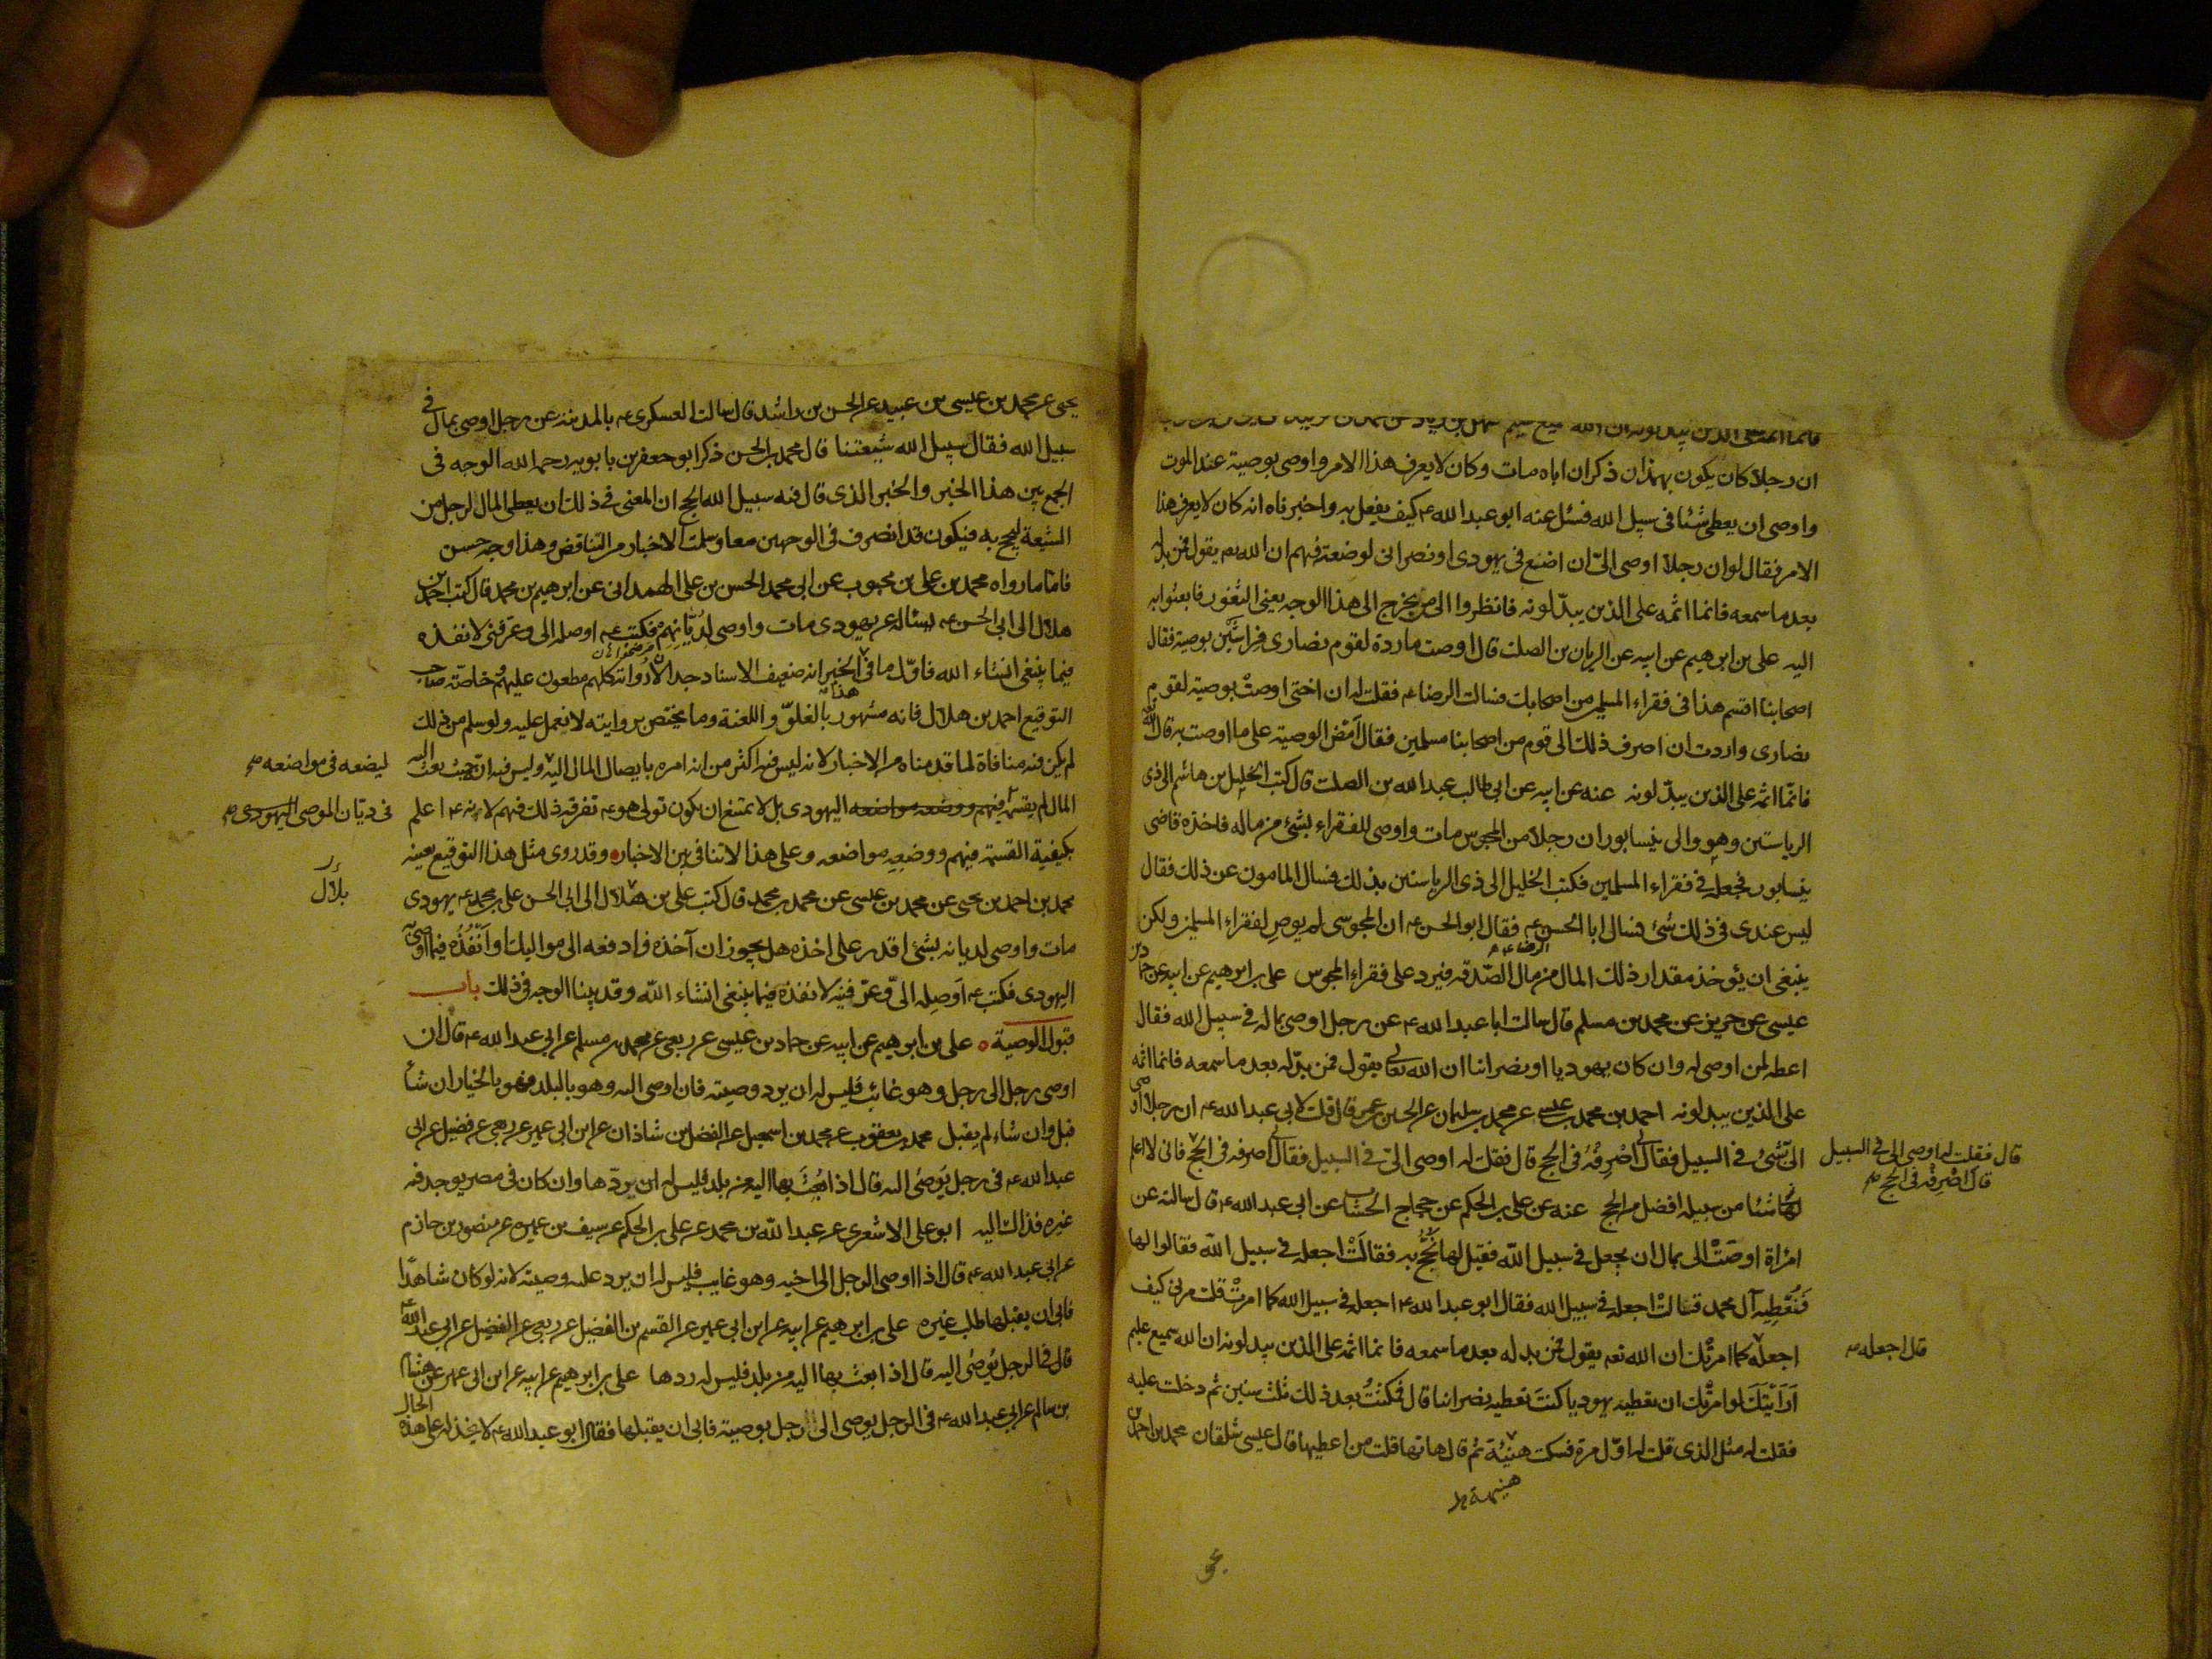 فانما اثمه على الذين يبدلونه ان الله سميع عليم سهل بن زياد عن محمد بن
ان رجلا كان يكون بهمذان ذكر ان اباه مات وكان لا يعرف هذا الامر واوصى بوصية عند الموت
واوصى ان يعطى شئا فى سبيل الله فسئل عنه ابو عبد الله ع كيف يفعل به واخبرناه انه كان لا يعرف هذا
الامر فقال لو ان رجلا اوصى الىّ ان اضع فى يهودى او نصرانى لوضعته فيهم ان الله تع يقول فمن بدله
بعد ما سمعه فانما اثمه على الذين يبدّلونه فانظروا الى من يخرج الى هذا الوجه يعنى الثغور فابعثوا به
اليه على بن ابرهيم عن ابيه عن الريان بن الصلت قال اوصت ماردة لقوم نصارى فراشين بوصية فقال
اصحابنا اقسم هذا فى فقراء المسلمين من اصحابك فسالت الرضا ع فقلت له ان اختى اوصتْ بوصية لقوم
نصارى واردت ان اصرف ذلك الى قوم من اصحابنا مسلمين فقال اَمْضِ الوصية على ما اوصت به قال الله
فانّما اثمه على الذين يبدّلونه عنه عن ابيه عن ابى طالب عبد الله بن الصلت قال كتب الخليل بن هاشم الى ذى
الرياستين وهو والى نيسابور ان رجلا من المجوس مات واوصى للفقراء بشئ من ماله فاخذه قاضى
نيسابور فجعله فى فقراء المسلمين فكتب الخليل الى ذى الرياستين بذلك فسال المامون عن ذلك فقال
ليس عندى فى ذلك شئ فسال ابا الحسن ع فقال ابو الحسن ع ان المجوسى لم يوصِ لفقراء المسلمين ولكن
الرضا ع
ينبغى ان يؤخذ مقدار ذلك المال من مال الصّدقه فيرد على فقراء المجوس على بن ابرهيم عن ابيه عن حماد بن
عيسى عن حريز عن محمد بن مسلم قال سالت ابا عبد الله ع عن رجل اوصى بماله فى سبيل الله فقال
اعطه لمن اوصى له وان كان يهوديا او نصرانيا ان الله تعالى يقول فمن بدّله بعد ما سمعه فانما اثمه
على الذين يبدلونه احمد بن محمد بن عيسى عن محمد بن سليمان عن الحسين بن عمر قال قلت لابى عبد الله ع ان رجلا اوصى
الىّ بشئ فى السبيل فقال لى اَصْرِفْهُ فى الحج قال فقلت له اوصى الىّ فى السبيل فقال اصرفه فى الحج فانى لا اعلم
شئا من سبيله افضل من الحج عنه عن على بن الحكم عن حجاج الخشاب عن ابى عبد الله ع قال سالته عن
امراة اوصَتْ الى بمال ان يجعل فى سبيل الله فقيل لها يُحَجُّ به فقالَتْ اجعله فى سبيل الله فقالوا لها
فَنُعْطِيه آل محمد قالتْ اجعله فى سبيل الله فقال ابو عبد الله ع اجعله فى سبيل الله كما امرتْ قلت مرنى كيف
اجعله كما امرتُك ان الله تعه يقول فمن بدله بعد ما سمعه فانما اثمه على الذين يبدلونه ان الله سميع عليم
اَرَاَيْتَكَ لو امرتُك ان تعطيه يهوديا كنتَ تعطيه نصرانيا قال فمكثتُ بعد ذلك ثلث سنين ثم دخلت عليه
فقلت له مثل الذى قلت له اوّل مرة فسكت هنيئة ثم قال هاتها قلت من اعطيها قال عيسى شلقان محمد بن احمد بن
هنيهة
قال فقلت له اوصى الى فى السبيل
قال اصْرِفْه فى الحج
قال اجعله
يحيى عن محمد بن عيسى بن عبيد عن الحسن بن راشد قال سالت العسكرى ع بالمدينة عن رجل اوصى بمال فى
سبيل الله فقال سبيل الله شيعتنا قال محمد بن الحسن ذكر ابو جعفر بن بابويه رحمه الله الوجه فى
الجمع بين هذا الخبر والخبر الذى قال فيه سبيل الله الحج ان المعنى فى ذلك ان يعطى المال لرجل من
الشيعة ليحج به فيكون قد انصرف فى الوجهين معا وسلمت الاخبار من التناقض وهذا وجه حسن
فامّا ما رواه محمد بن على بن محبوب عن ابى محمد الحسن بن على الهمدانى عن ابرهيم بن محمد قال كتب احمد بن
هلال الى ابى الحسن ع يساله عن يهودى مات واوصى لديّانهم فكتب ع اوصله الى وعرّفنى لانفذه
فيما ينبغى انشاء الله فاوّل ما فى الخبر انه ضعيف الاسناد جدا لان رواته كلهم مطعون عليهم وخاصّة صاحب
هذا
التوقيع احمد بن هلال فانه مشهور بالغلوّ واللعنة وما يختص بروايته لا نعمل عليه ولو سلم من ذلك
لم يكن فيه منافاة لما قدمناه من الاخبار لانه ليس فيه اكثر من انه امره بايصال المال اليه وليس فيه انّ حيث بعث اليه
المال لم يقسمه فيهم ووضعه مواضعه اليهودى بل لا يمتنع ان يكون تولى هو ع تفرقه ذلك فيهم لانه ع اعلم
بكيفية القسمة فيهم ووضعه مواضعه وعلى هذا لا تنافى بين الاخبار وقد روى مثل هذا التوقيع بعينه
محمد بن احمد بن يحيى عن محمد بن عيسى عن محمد بن محمد قال كتب على بن هلال الى ابى الحسن على بن محمد ع يهودى
مات واوصى لديانه بشئ اقدر على اخذه هل يجوز ان آخذه فادفعه الى مواليك او اُنْفُذُه فيما اوصى به
اليهودى فكتب ع اَوصِله الىّ وعرّفنيه لانفذه فيما ينبغى انشاء الله وقد بينا الوجه فى ذلك باب
قبول الوصية على بن ابرهيم عن ابيه عن حماد بن عيسى عن ربعى عن محمد بن مسلم عن ابى عبد الله ع قال ان
اوصى رجل الى رجل وهو غائب فليس له ان يرد وصيته فان اوصى اليه وهو بالبلد فهو بالخيار ان شاء
قبل وان شاء لم يقبل محمد بن يعقوب عن محمد بن اسمعيل عن الفضل بن شاذان عن ابن ابى عمير عن ربعى عن فضيل عن ابى
عبد الله ع فى رجل يُوصَى اليه قال اذا بُعِثَ بها اليه من بلد فليس له ان يردّها وان كان فى مصر يوجد فيه
غيره فذلك اليه ابو على الاشعرى عن عبد الله بن محمد عن على بن الحكم عن سيف بن عميرة عن منصور بن حازم
عن ابى عبد الله ع قال اذا اوصى الرجل الى اخيه وهو غايب فليس له ان يرد عليه وصيته لانه لو كان شاهدًا
فابى ان يقبلها طلب غيره على بن ابرهيم عن ابيه عن ابن ابى عمير عن القسم بن الفضيل عن ربعى عن الفضيل عن ابى عبد الله ع
قال فى الرجل يُوصَى اليه قال اذا بعث بها اليه من بلد فليس له ردها على بن ابرهيم عن ابيه عن ابن ابى عمير عن هشام
بن سالم عن ابى عبد الله ع فى الرجل يوصى الى رجل بوصية فابى ان يقبلها فقال ابو عبد الله ع لا يخذله على هذه الحال
ليضعه فى مواضعه
فى ديّان الموصى اليهودى
بلال